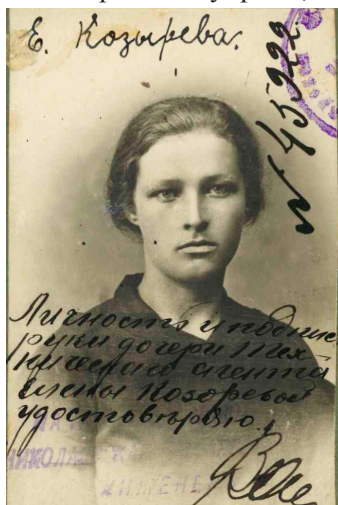 Е. Козырева.
№ 45922.
Личность и подпись
руки дочери тех
нического агента
Елены Козыревой
удостовѣряю.
НИКОЛА
ИНЖЕНЕ